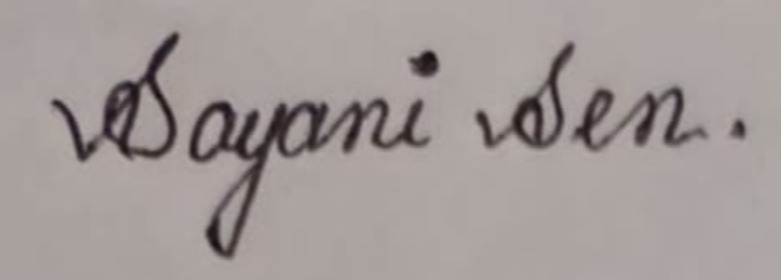 Sayani Sen.